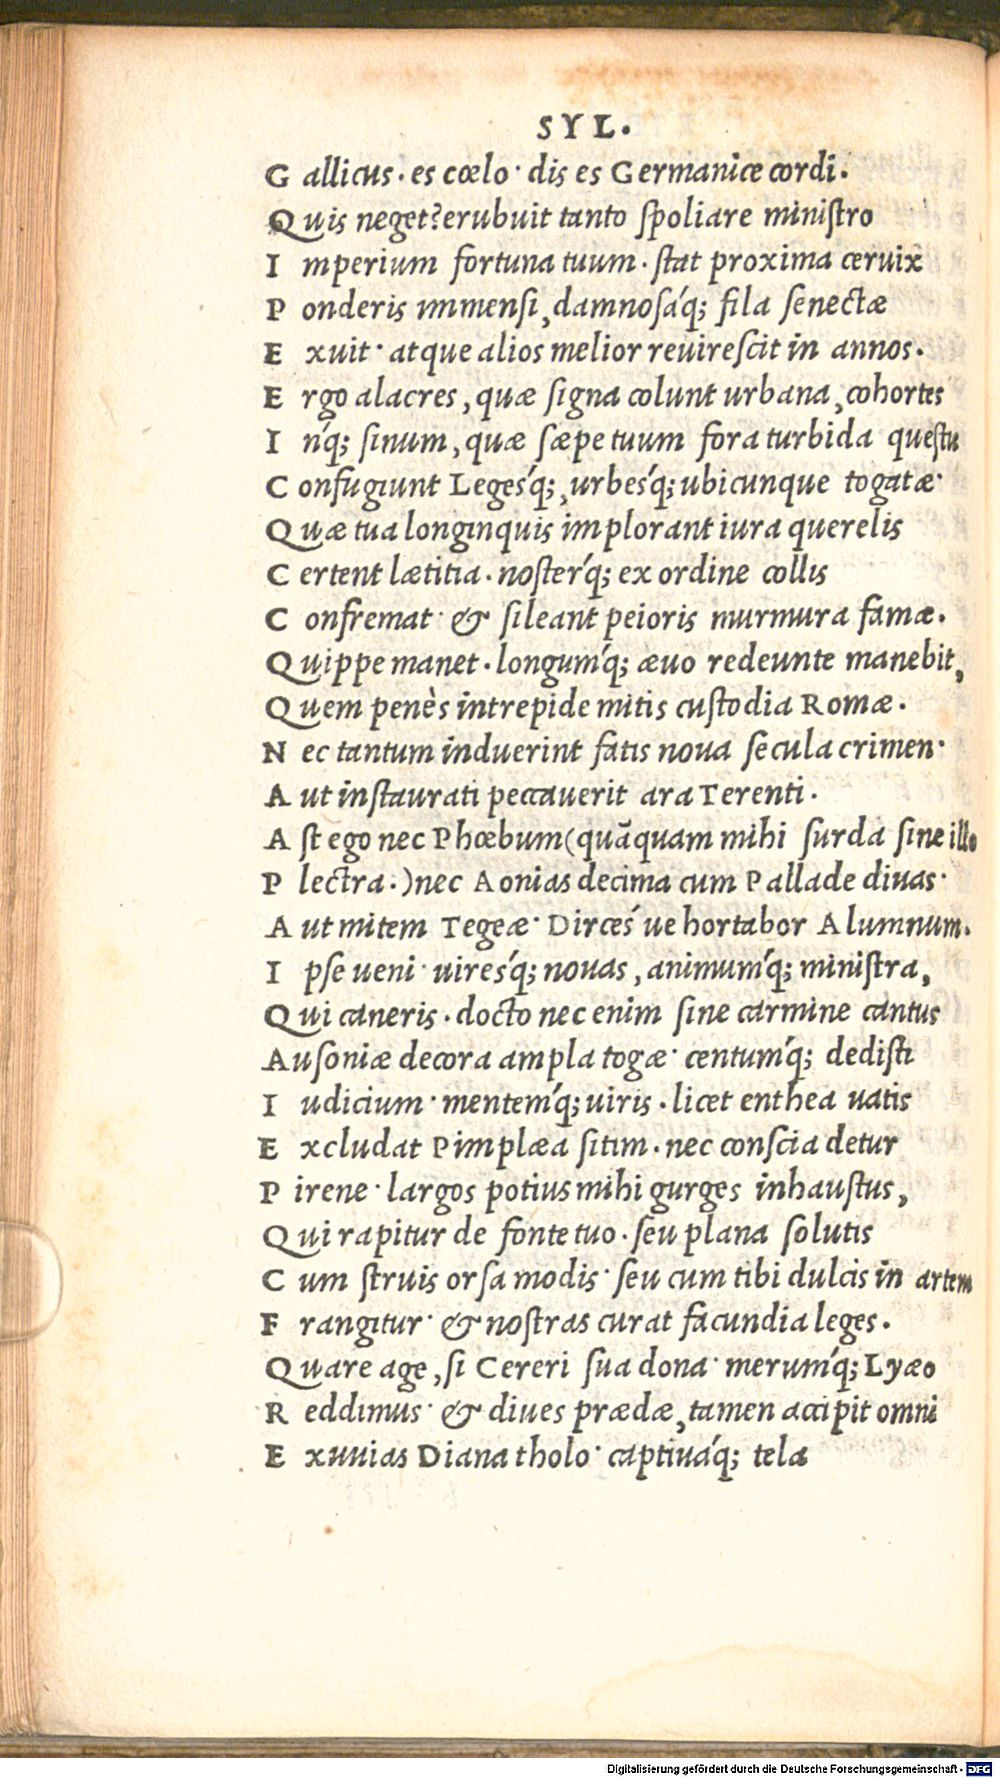 SYL.
Gallicus. es cœlo· dis es Germanice cordi.
Quis neget? erubuit tanto ſpoliare miniſtro
Imperium fortuna tuum. ſtat proxima ceruix
Ponderis immenſi, damnoſáq; fila ſenectæ
Exuit· atque alios melior reuireſcit in annos.
Ergo alacres, quæ ſigna colunt urbana, cohortes
Inq́; ſinum, quæ ſæpe tuum fora turbida queſtu
Confugiunt Legesq́;, urbesq́; ubicunque togatæ·
Quæ tua longinquis implorant iura querelis
Certent lætitia. noſterq́; ex ordine collis
Confremat· & ſileant peioris murmura famæ.
Quippe manet. longumq́; æuo redeunte manebit,
Quem penès intrepide mitis cuſtodia Romæ.
Nec tantum induerint fatis noua ſecula crimen·
Aut inſtaurati peccauerit ara Terenti.
Aſt ego nec Phœbum (quãquam mihi ſurda ſine illo
Plectra.) nec Aonias decima cum Pallade diuas·
Aut mitem Tegeæ· Dirceś ue hortabor Alumnum.
Ipſe ueni· uiresq́; nouas, animumq́; miniſtra,
Qui caneris. docto nec enim ſine carmine cantus
Auſoniæ decora ampla togæ· centumq́; dediſti
Iudicium· mentemq́; uiris. licet enthea uatis
Excludat Pimplæa ſitim. nec conſcia detur
Pirene· largos potius mihi gurges inhauſtus,
Qui rapitur de fonte tuo. ſeu plana ſolutis
Cum ſtruis orſa modis· ſeu cum tibi dulcis in artem
Frangitur· & noſtras curat facundia leges.
Quare age, ſi Cereri ſua dona· merumq́; Lyæo
Reddimus· & diues prædæ, tamen accipit omni
Exuuias Diana tholo· captiuáq; tela
Digitalisierung gefördert durch die Deutsche Forschungsgemeinschaft - DFG